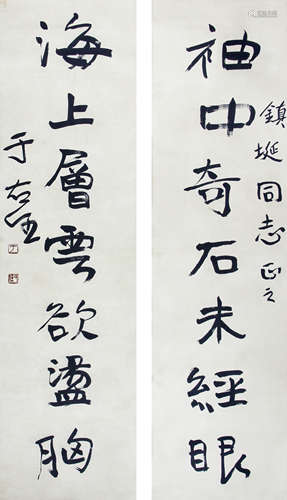 袖中奇石未經眼
鎮埏同志正之
海上層雲欲盪胸
于右任